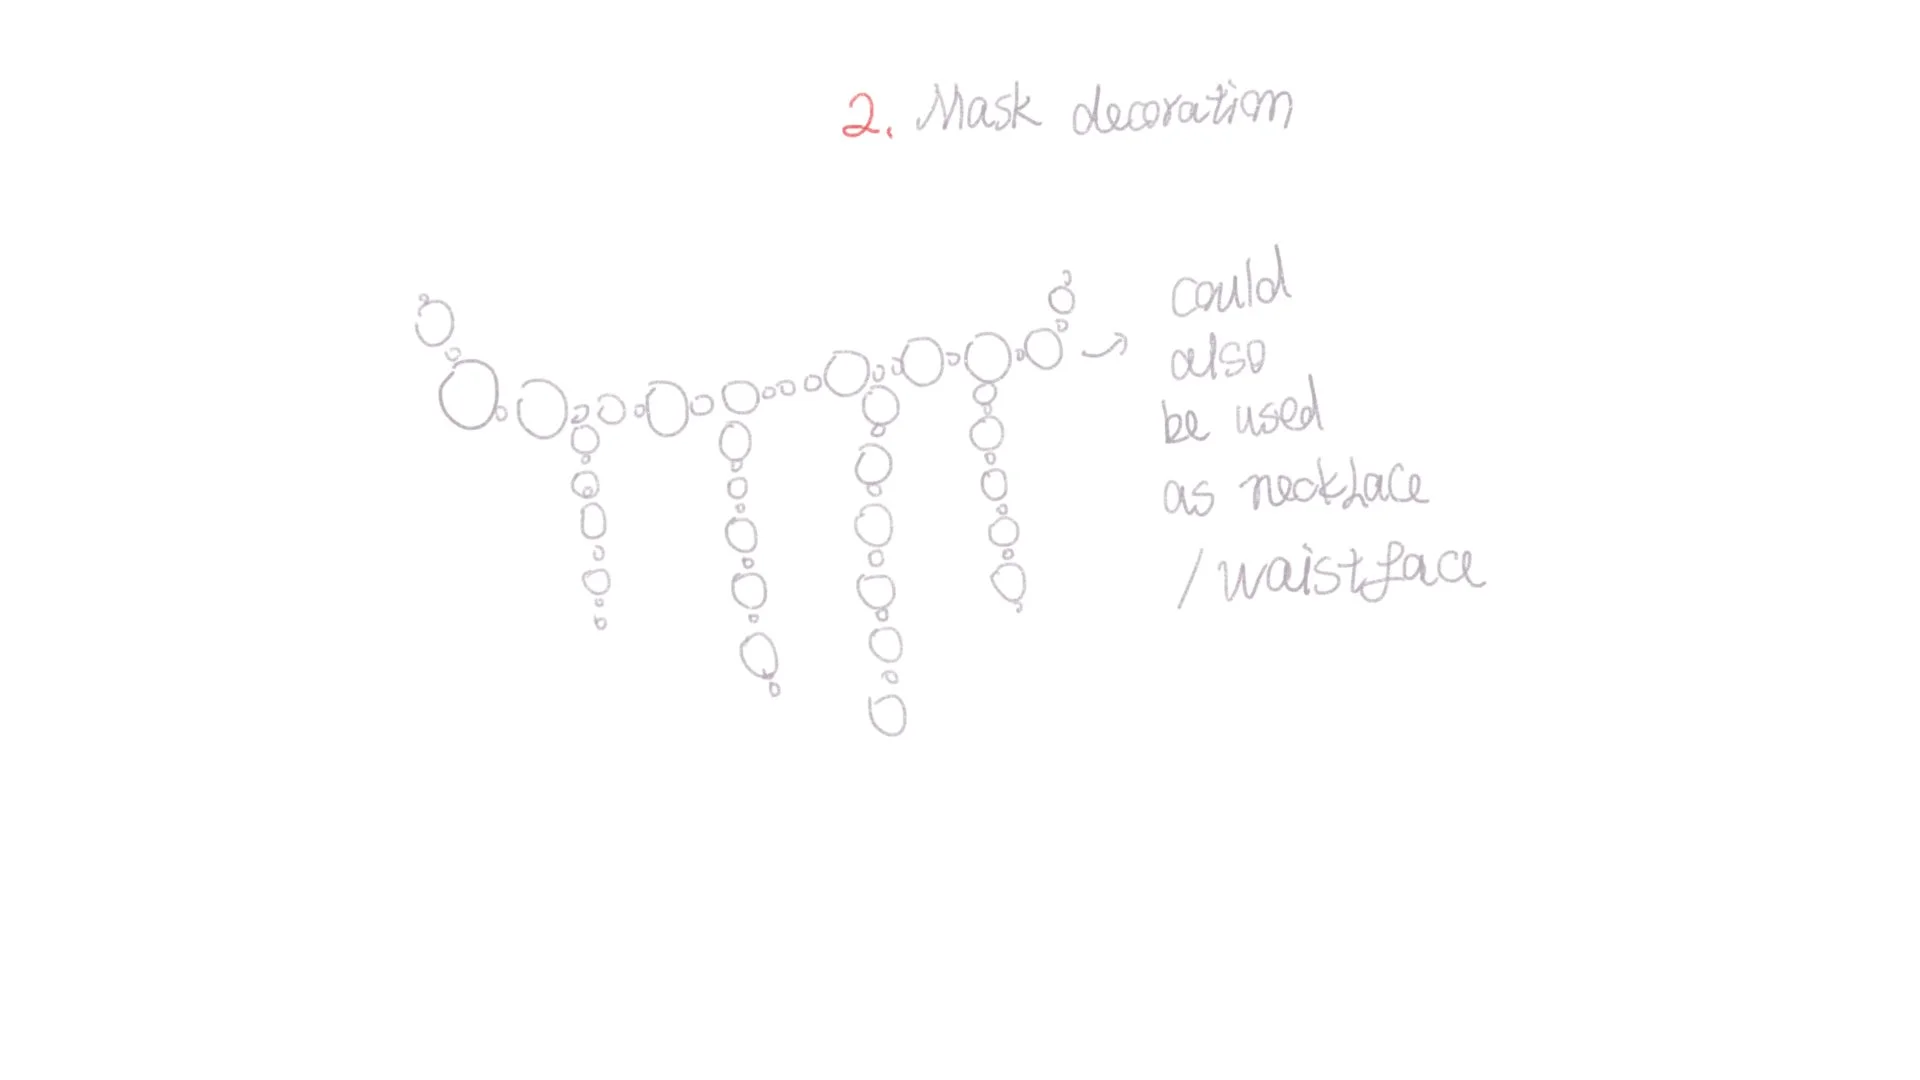 2. Mask decoration
could
also
be used
as necklace
/waistface